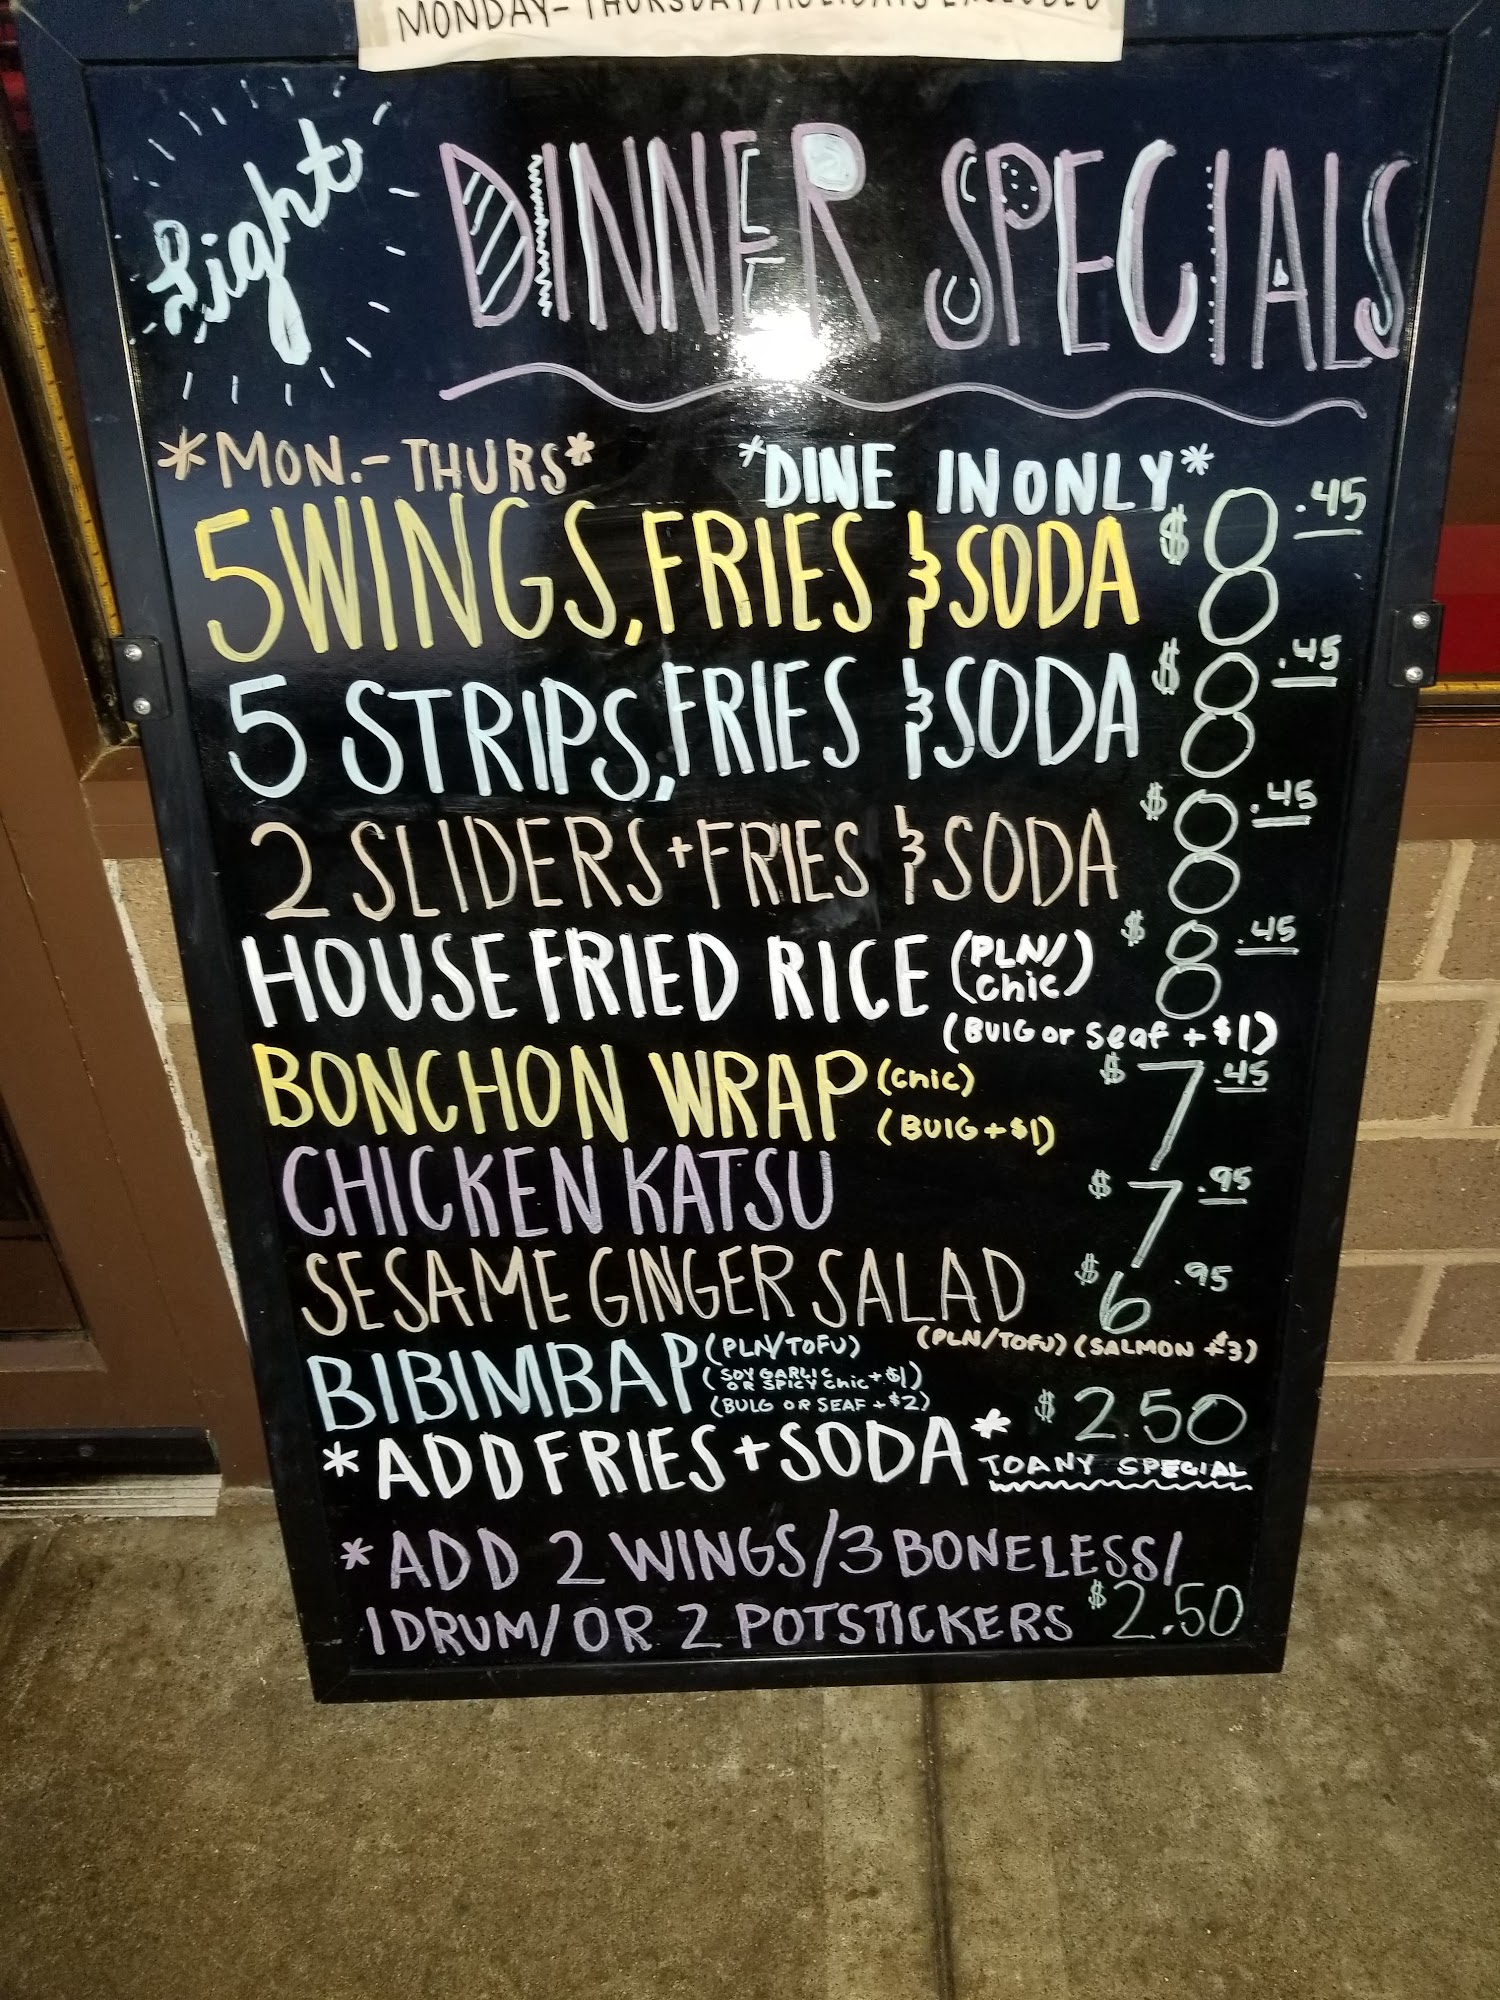 MONDAY- THURSDAY/HOLIDAYS EXCLUDED
Light DINNER SPECIALS
*MON.- THURS* *DINE IN ONLY*
5 WINGS, FRIES & SODA $8.45
5 STRIPS, FRIES & SODA $8.45
2 SLIDERS + FRIES & SODA $8.45
HOUSE FRIED RICE (PLN/chic) $8.45
(BULG or Seaf + $1)
BONCHON WRAP (chic) $7.45
(BULG + $1)
CHICKEN KATSU $7.95
SESAME GINGER SALAD $6.95
(PLN/TOFU) (SALMON +$3)
BIBIMBAP (PLN/TOFU)
(SOY GARLIC OR SPICY chic + $1)
(BULG OR SEAF + $2)
*ADD FRIES + SODA* $2.50
TO ANY SPECIAL
*ADD 2 WINGS/3 BONELESS/
1 DRUM/OR 2 POTSTICKERS $2.50